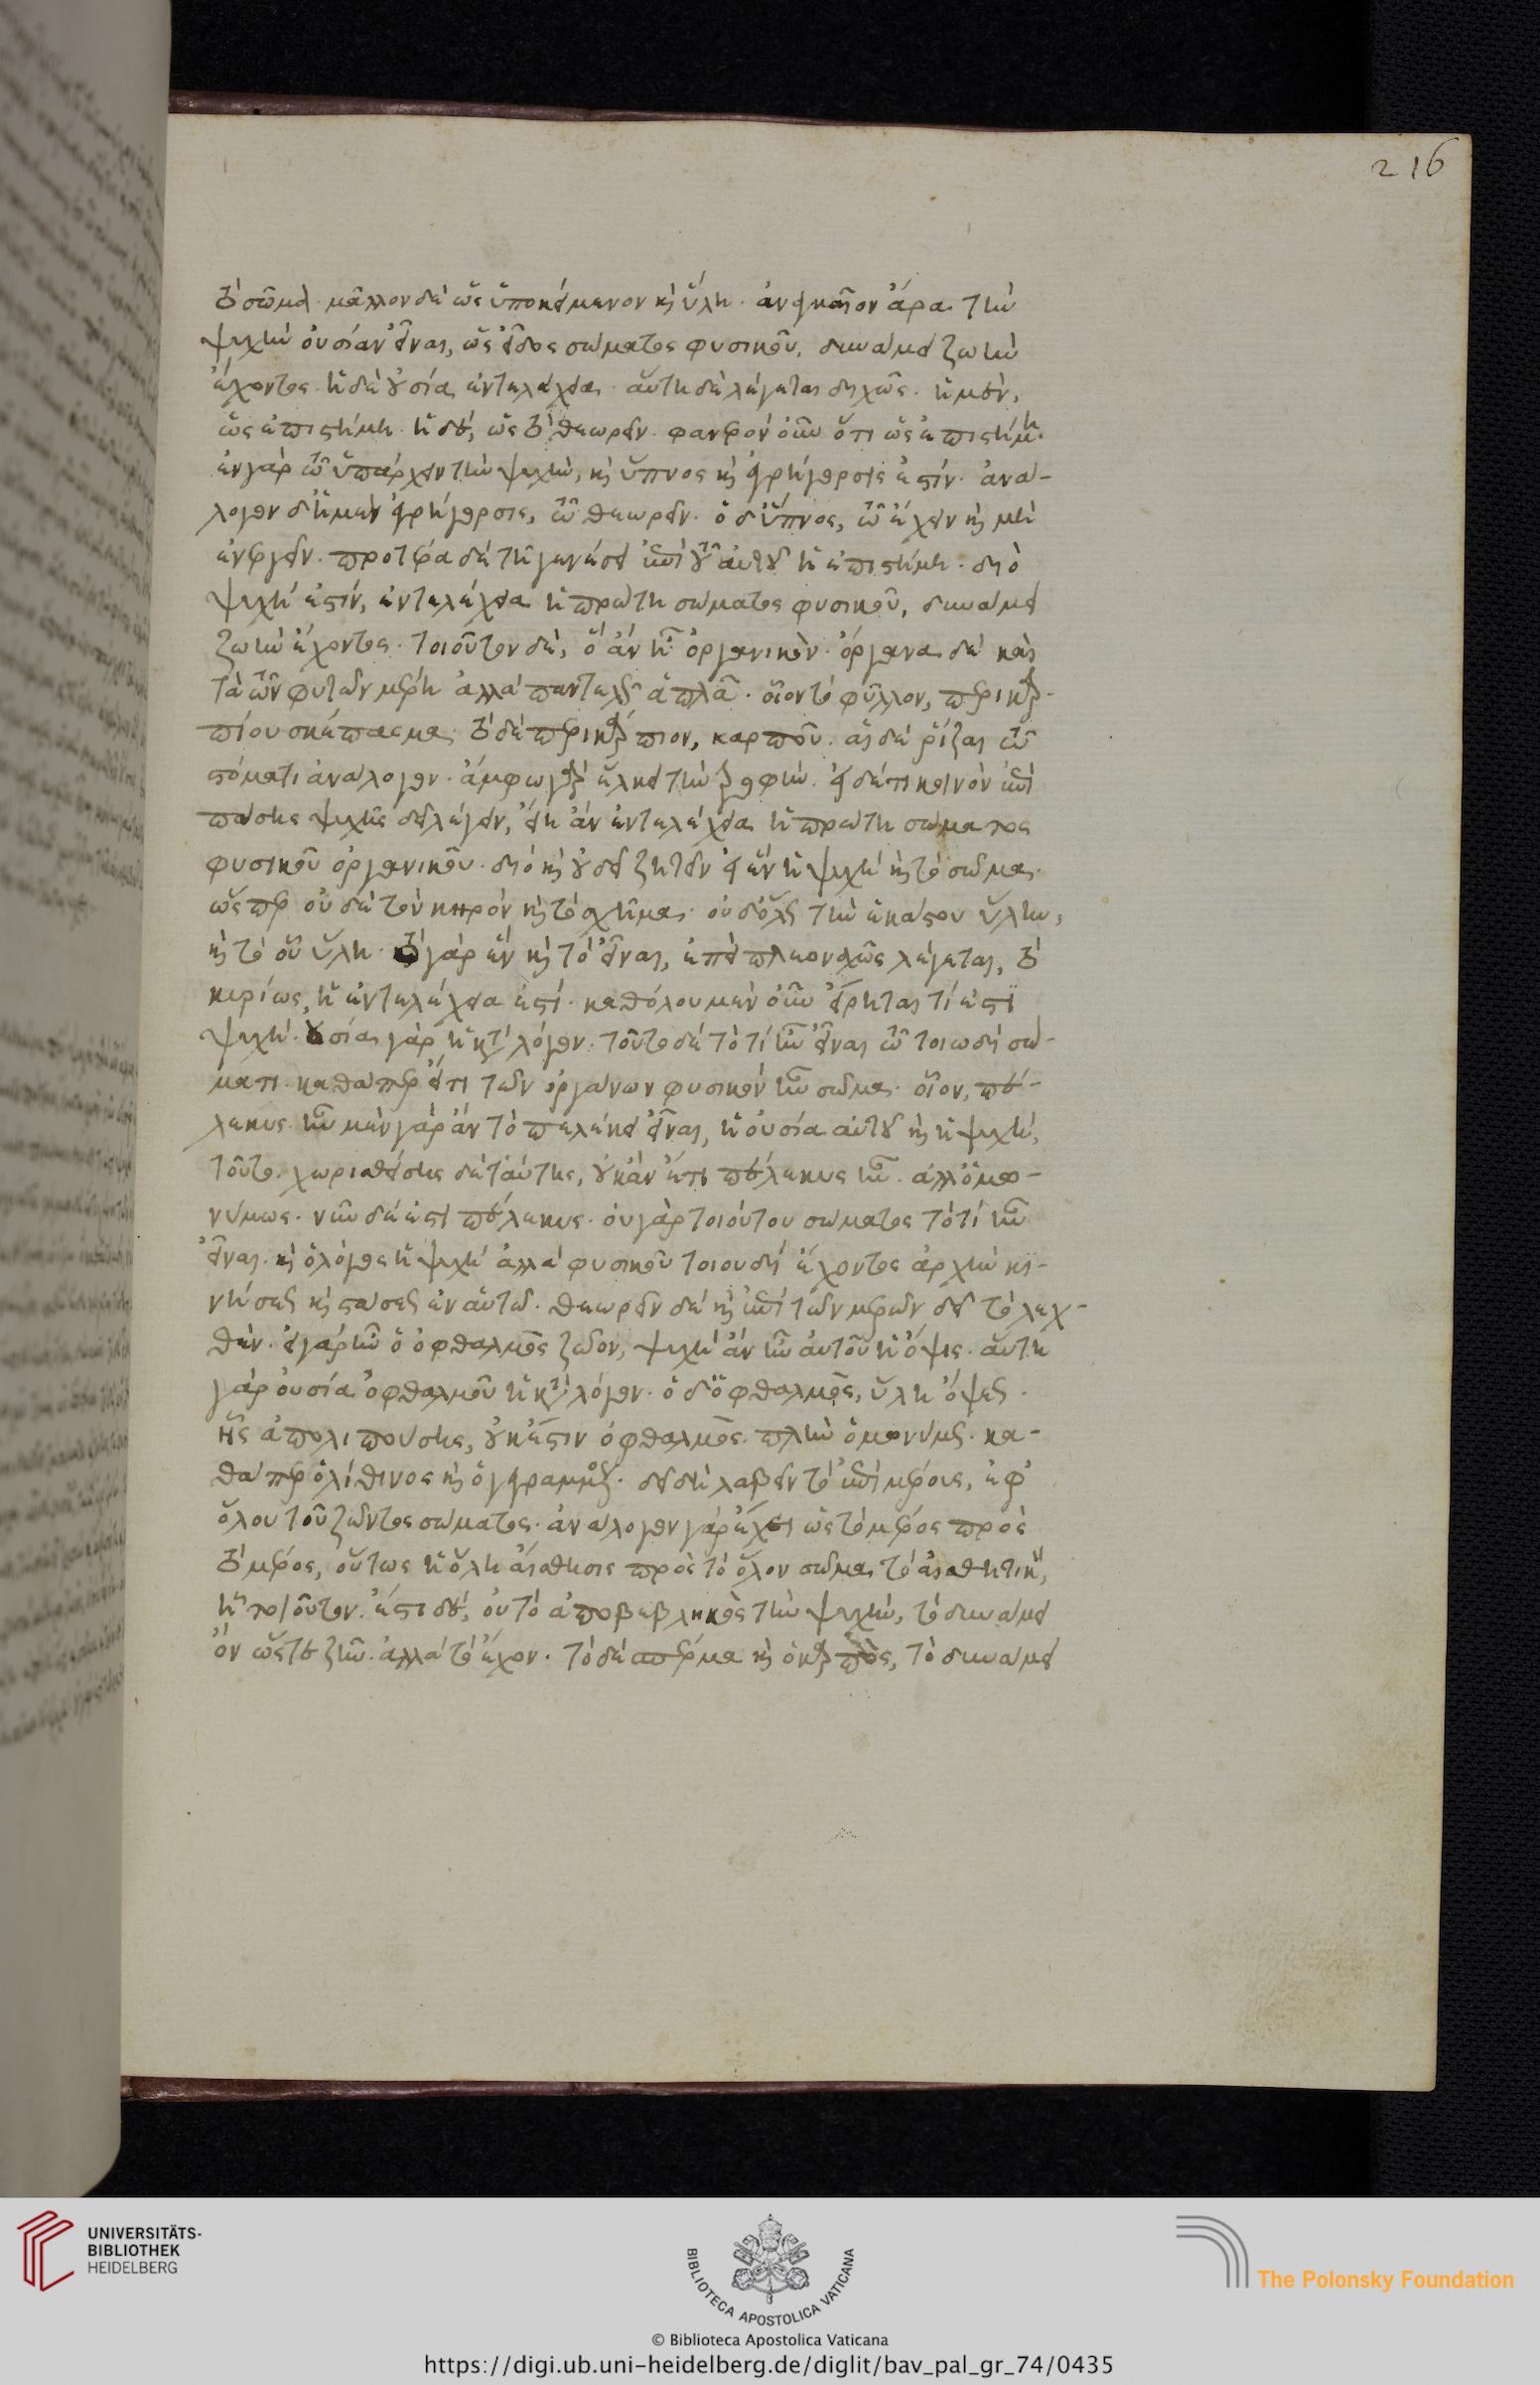 216
τὸ σῶμα· μᾶλλον δὲ ὡς ὑποκείμενον καὶ ὕλη· ἀναγκαῖον ἄρα τὴν
ψυχὴν οὐσίαν εἶναι, ὡς εἶδος σώματος φυσικοῦ, δυνάμει ζωὴν
ἔχοντος· ἡ δὲ οὐσία ἐντελέχεια· αὕτη δὲ λέγεται διχῶς· ἡ μὲν,
ὡς ἐπιστήμη· ἡ δὲ, ὡς τὸ θεωρεῖν· φανερὸν οὖν ὅτι ὡς ἐπιστήμη·
ἐν γὰρ τῷ ὑπάρχειν τὴν ψυχὴν, καὶ ὕπνος καὶ ἐγρήγορσίς ἐστιν· ἀνά-
λογον δ' ἡ μὲν ἐγρήγορσις, τῷ θεωρεῖν· ὁ δ' ὕπνος, τῷ ἔχειν καὶ μὴ
ἐνεργεῖν· προτέρα δὲ τῇ γενέσει ἐπὶ τοῦ αὐτοῦ ἡ ἐπιστήμη· διὸ
ψυχή ἐστιν, ἐντελέχεια ἡ πρώτη σώματος φυσικοῦ, δυνάμει
ζωὴν ἔχοντος· τοιοῦτον δὲ, ὃ ἂν ᾖ ὀργανικὸν· ὄργανα δὲ καὶ
τὰ τῶν φυτῶν μέρη ἀλλὰ παντελῶς ἁπλᾶ· οἷον τὸ φύλλον, περικαρ-
πίου σκέπασμα· τὸ δὲ περικάρπιον, καρποῦ· αἱ δὲ ῥίζαι τῷ
στόματι ἀνάλογον· ἄμφω γὰρ ἕλκει τὴν τροφὴν· εἰ δέ τι κοινὸν ἐπὶ
πάσης ψυχῆς δεῖ λέγειν, εἴη ἂν ἐντελέχεια ἡ πρώτη σώματος
φυσικοῦ ὀργανικοῦ· διὸ καὶ οὐ δεῖ ζητεῖν εἰ ἓν ἡ ψυχὴ καὶ τὸ σῶμα·
ὥσπερ οὐδὲ τὸν κηρὸν καὶ τὸ σχῆμα· οὐδ' ὅλως τὴν ἑκάστου ὕλην,
καὶ τὸ οὗ ὕλη· τὸ γὰρ ἓν καὶ τὸ εἶναι, ἐπεὶ πλεοναχῶς λέγεται, τὸ
κυρίως, ἡ ἐντελέχειά ἐστι· καθόλου μὲν οὖν εἴρηται τί ἐστι
ψυχή· οὐσία γὰρ ἡ κατὰ λόγον· τοῦτο δὲ τὸ τί ἦν εἶναι τῷ τοιῳδὶ σώ-
ματι· καθάπερ εἴ τι τῶν ὀργάνων φυσικὸν ἦν σῶμα· οἷον, πέ-
λεκυς· ἦν μὲν γὰρ ἂν τὸ πελέκει εἶναι, ἡ οὐσία αὐτοῦ καὶ ἡ ψυχή,
τοῦτο· χωρισθείσης δὲ ταύτης, οὐκ ἂν ἔτι πέλεκυς ἦν· ἀλλ' ὁμω-
νύμως· νῦν δέ ἐστι πέλεκυς· οὐ γὰρ τοιούτου σώματος τὸ τί ἦν
εἶναι· καὶ ὁ λόγος ἡ ψυχὴ ἀλλὰ φυσικοῦ τοιουδὶ ἔχοντος ἀρχὴν κι-
νήσεως καὶ στάσεως ἐν αὑτῷ· θεωρεῖν δὲ καὶ ἐπὶ τῶν μερῶν δεῖ τὸ λεχ-
θέν· εἰ γὰρ ἦν ὁ ὀφθαλμὸς ζῶον, ψυχὴ ἂν ἦν αὐτοῦ ἡ ὄψις· αὕτη
γὰρ οὐσία ὀφθαλμοῦ ἡ κατὰ λόγον· ὁ δ' ὀφθαλμὸς, ὕλη ὄψεως·
ἧς ἀπολιπούσης, οὐκ ἔστιν ὀφθαλμὸς· πλὴν ὁμωνύμως· κα-
θάπερ ὁ λίθινος καὶ ὁ γεγραμμένος· δεῖ δὴ λαβεῖν τὸ ἐπὶ μέρους, ἐφ'
ὅλου τοῦ ζῶντος σώματος· ἀνάλογον γὰρ ἔχει ὡς τὸ μέρος πρὸς
τὸ μέρος, οὕτως ἡ ὅλη αἴσθησις πρὸς τὸ ὅλον σῶμα τὸ αἰσθητικὸν,
ᾗ τοιοῦτον· ἔστι δὲ, οὐ τὸ ἀποβεβληκὸς τὴν ψυχὴν, τὸ δυνάμει
ὂν ὥστε ζῆν· ἀλλὰ τὸ ἔχον· τὸ δὲ σπέρμα καὶ ὁ καρπὸς, τὸ δυνάμει
UNIVERSITÄTS-
BIBLIOTHEK
HEIDELBERG
BIBLIOTECA APOSTOLICA VATICANA
The Polonsky Foundation
© Biblioteca Apostolica Vaticana
https://digi.ub.uni-heidelberg.de/diglit/bav_pal_gr_74/0435